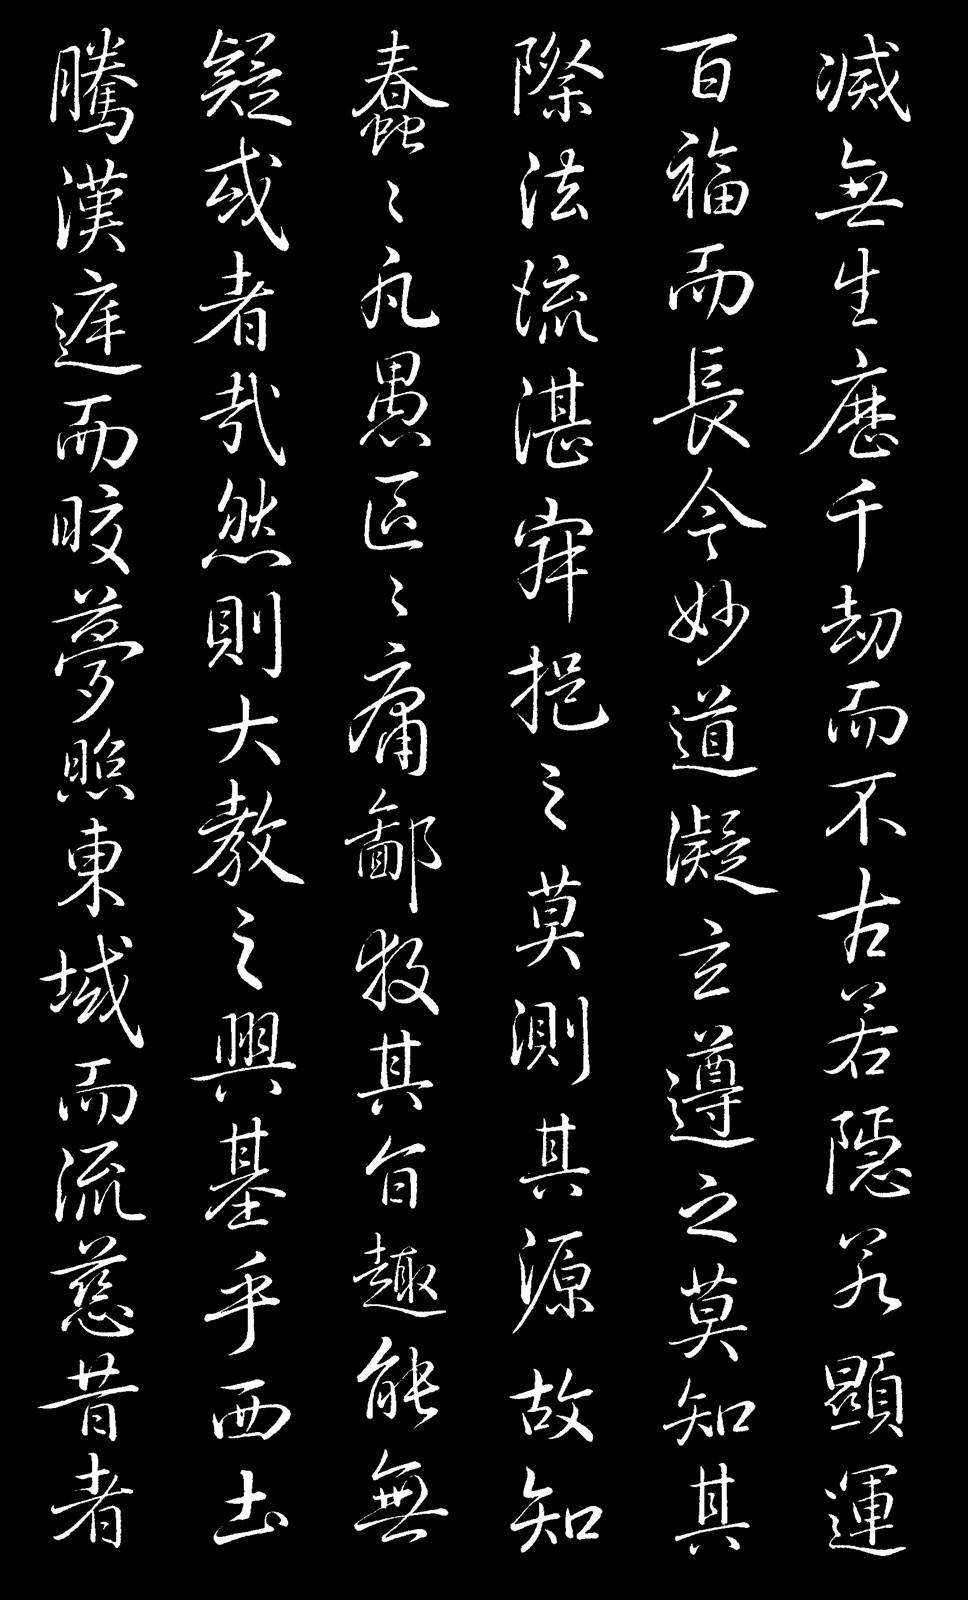 滅無生歷千劫而不古若隱若顯運
百福而長今妙道凝玄遵之莫知其
際法流湛寂挹之莫測其源故知
蠢〻凡愚區〻庸鄙投其旨趣能無
疑或者哉然則大教之興基乎西土
騰漢庭而皎夢照東域而流慈昔者